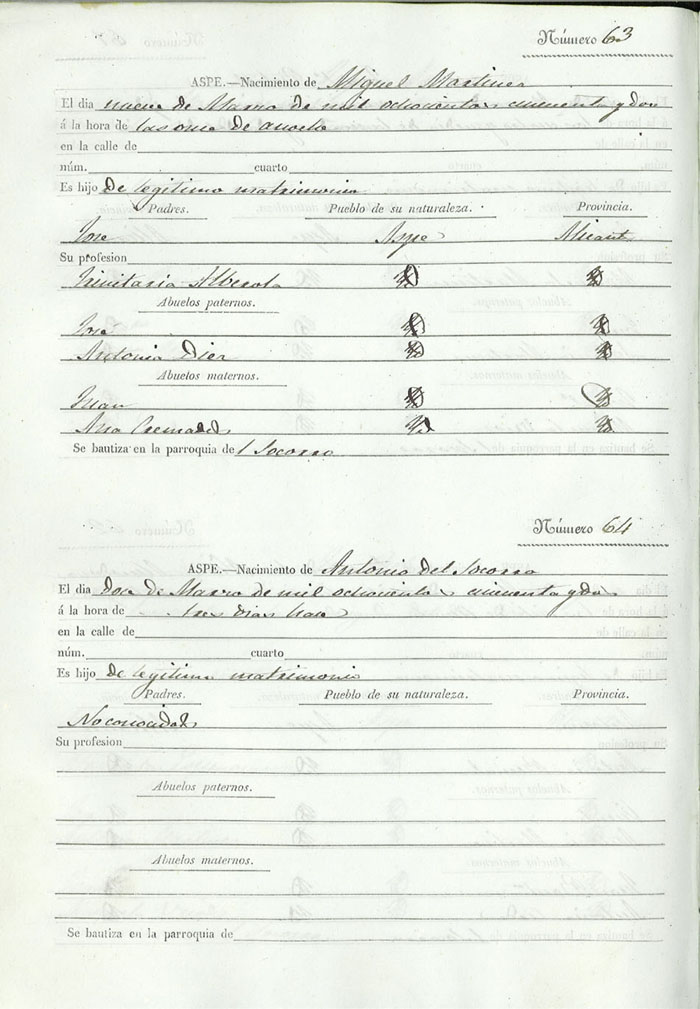 Número 63
ASPE.—Nacimiento de Miguel Martinez
El dia nueve de Marzo de mil ochocientos cincuenta y dos
á la hora de las once de anoche
en la calle de
núm. cuarto
Es hijo de legitimo matrimonio
Padres. Pueblo de su naturaleza. Provincia.
Jose Aspe Alicante
Su profesion
Trinitaria Alberola
Abuelos paternos.
José
Antonia Diez
Abuelos maternos.
Juan
Ana Cremades
Se bautiza en la parroquia de l Socorro
Número 64
ASPE.—Nacimiento de Antonio del Socorro
El dia doce de Marzo de mil ochocientos cincuenta y dos
á la hora de tres dias hace
en la calle de
núm. cuarto
Es hijo de legitimo matrimonio
Padres. Pueblo de su naturaleza. Provincia.
No conocidos
Su profesion
Abuelos paternos.
Abuelos maternos.
Se bautiza en la parroquia de